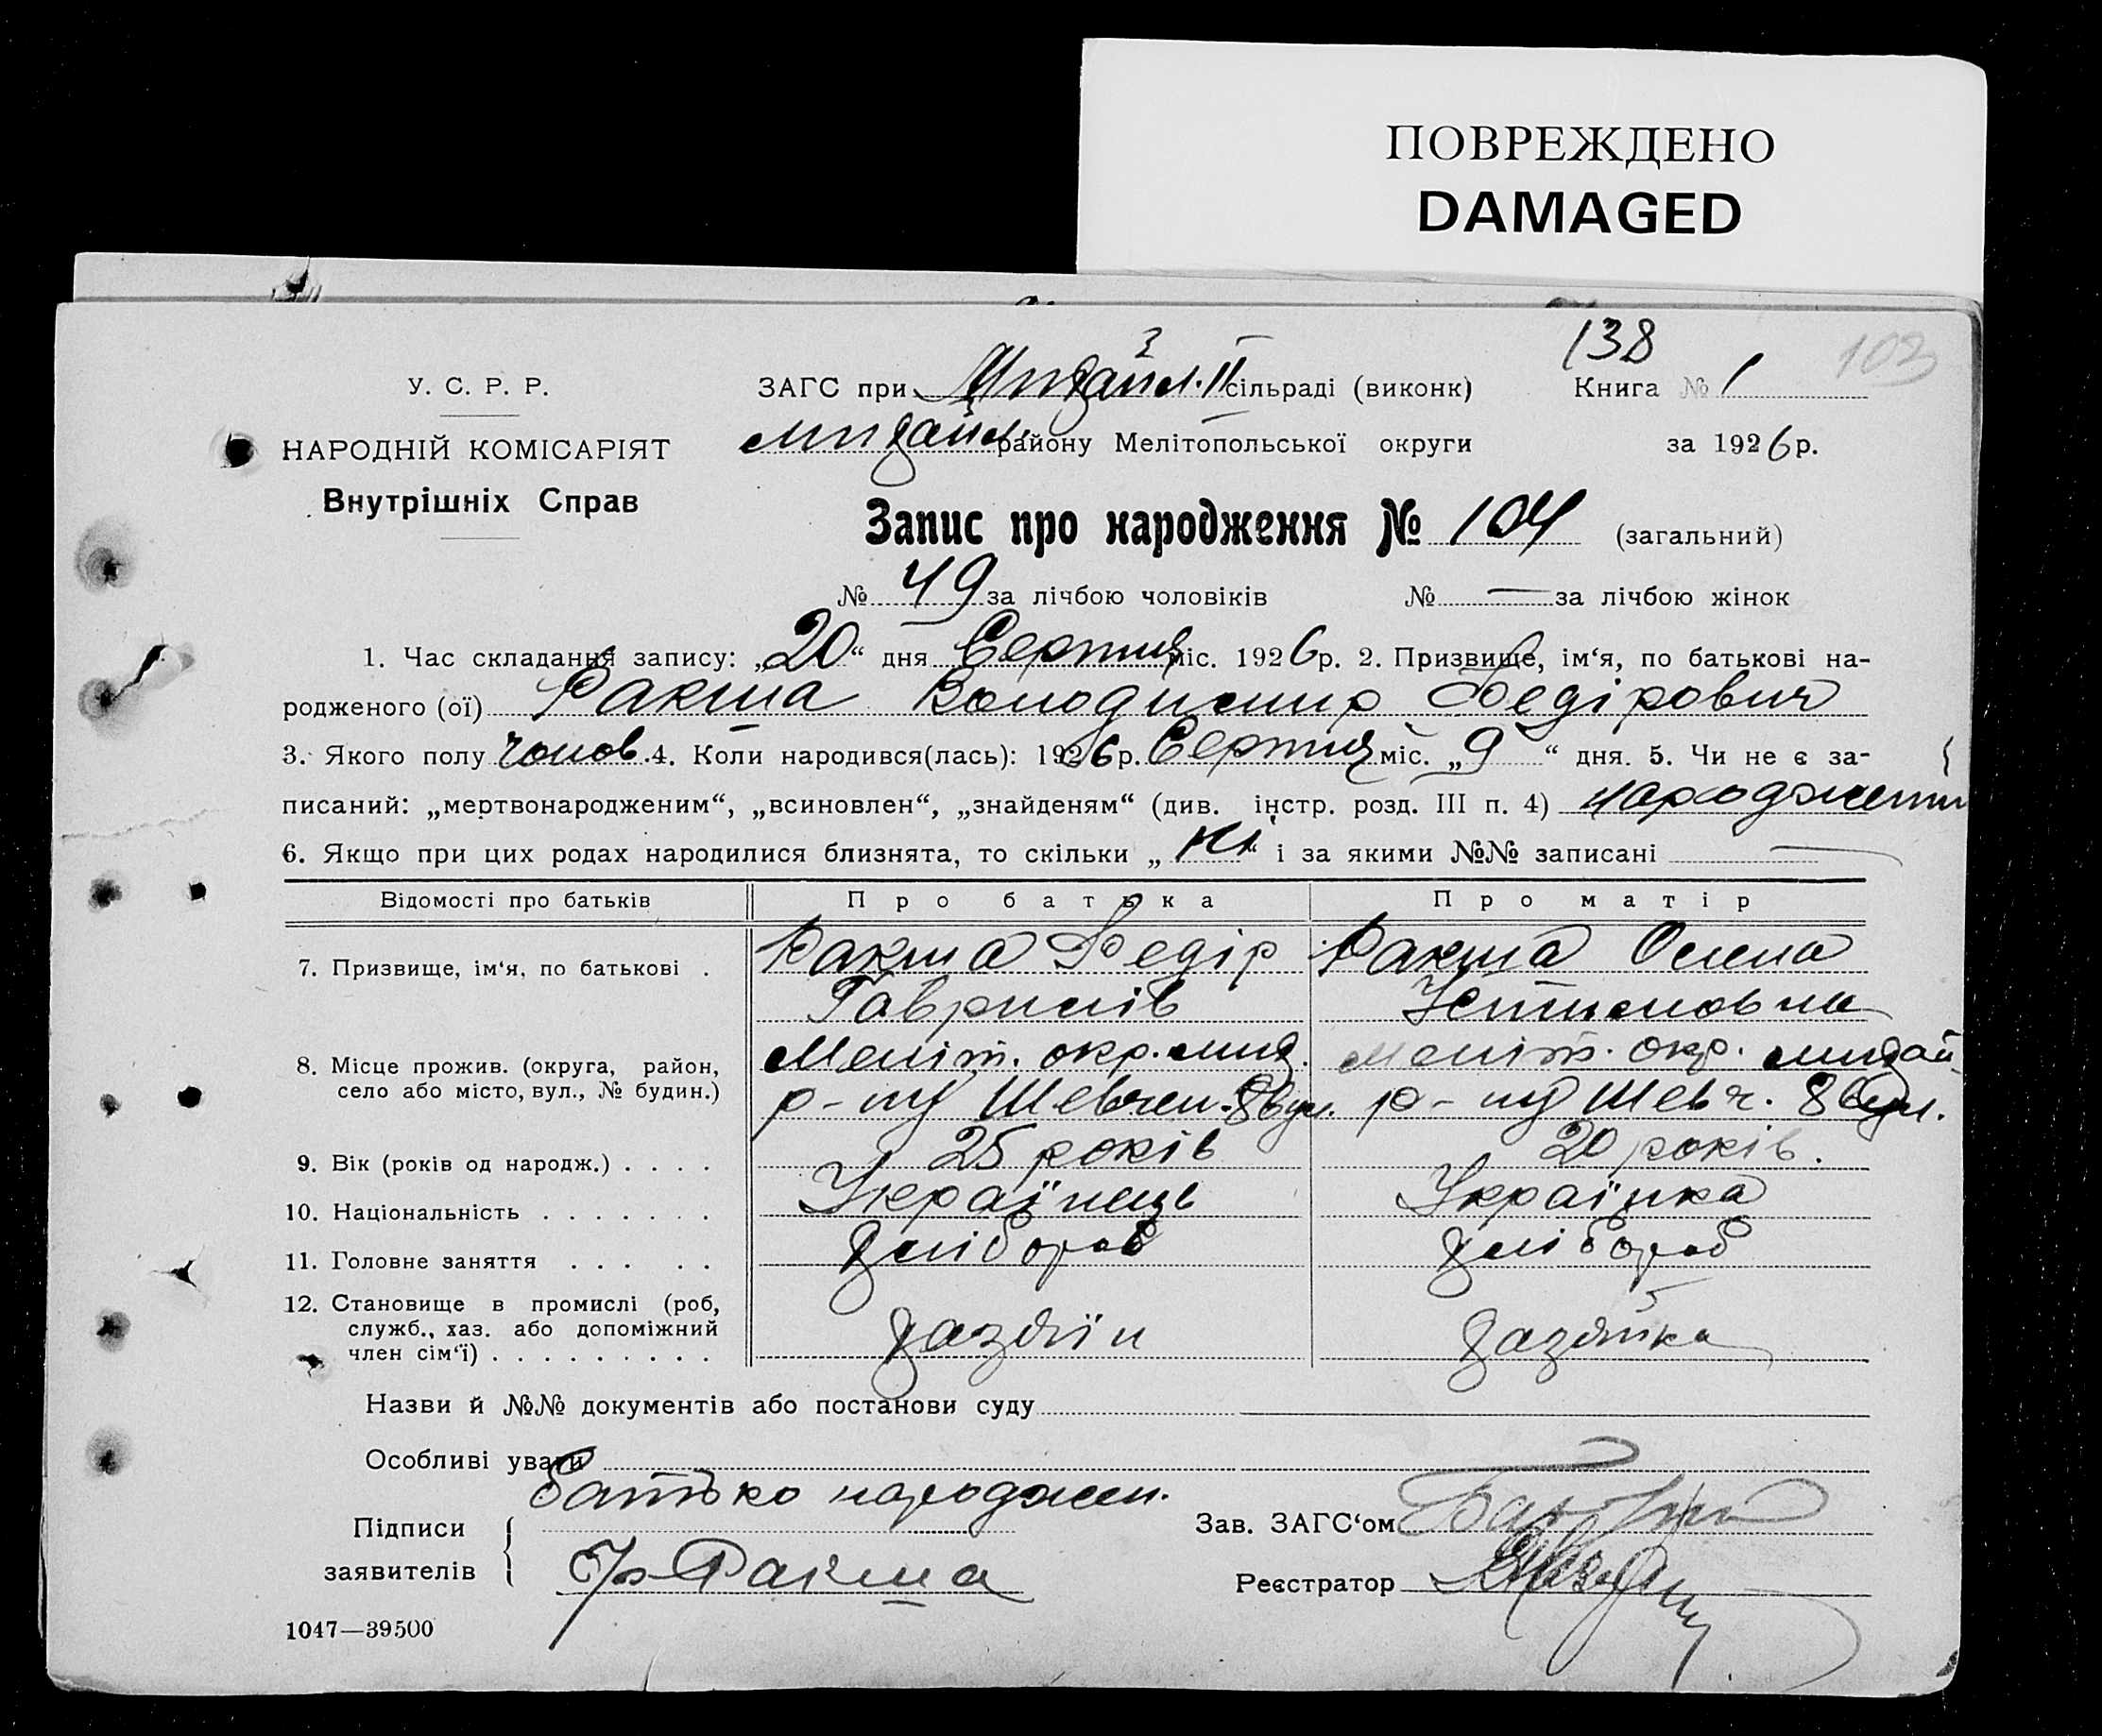 ПОВРЕЖДЕНО
DAMAGED
138
103
У. С. Р. Р.
ЗАГС при Михайл. II сільраді (виконк)
Книга № 1
НАРОДНІЙ КОМІСАРІЯТ
Михайл. району Мелітопольської округи
за 1926 р.
Внутрішніх Справ
Запис про народження № 104 (загальний)
№ 49 за лічбою чоловіків № — за лічбою жінок
1. Час складання запису: „20“ дня Серпня міс. 1926 р. 2. Призвище, ім‘я, по батькові на-
родженого (ої) Ракша Володимир Федірович
3. Якого полу чолов. 4. Коли народився(лась): 1926 р. Серпня міс. „9“ дня. 5. Чи не є за-
писаний: „мертвонародженим“, „всиновлен“, „знайденям“ (див. інстр. розд. III п. 4)
6. Якщо при цих родах народилися близнята, то скільки „ “ і за якими №№ записані —
Відомості про батьків Про батька Про матір
7. Призвище, ім‘я, по батькові . Ракша Федір Ракша Олена
Гаврилів Устимовна
8. Місце прожив. (округа, район, Меліт. окр. мих. Меліт. окр. михай-
село або місто, вул., № будин.) р-ну Шевчен. 8 вул. р-ну Шевч. 8 вул.
9. Вік (років од народж.) . . . . 25 років 20 років.
10. Національність . . . . . . . Українець Українка
11. Головне заняття . . . . . хлібороб хлібороб
12. Становище в промислі (роб,
служб., хаз. або допоміжний хазяїн хазяйка
член сім‘ї) . . . . . . . . .
Назви й №№ документів або постанови суду
Особливі уваги
Батько народжен.
Підписи
заявителів
Ракша
Зав. ЗАГС‘ом
Реєстратор
1047—39500